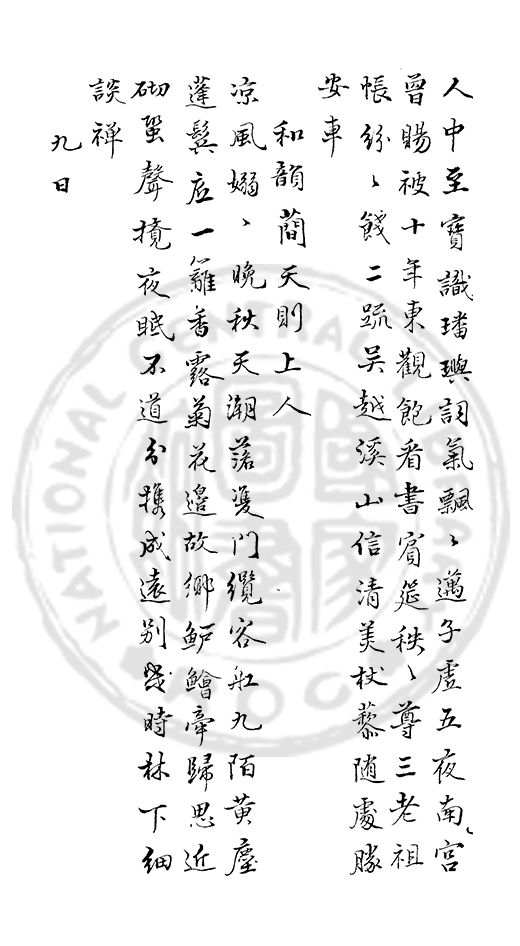 人中至寶識璠璵詞氣飄〻邁子虛五夜南宮
曾賜被十年東觀飽看書賓筵秩〻尊三老祖
帳紛〻餞二疏吴越溪山信清美杖藜随處勝
安車
和韻蘭天則上人
凉風嫋〻晚秋天潮落渡門纜客舡九陌黃塵
蓬鬢底一籬香露菊花邉故鄉鱸鱠牽歸思近
砌蛩聲攪夜眠不道分携成遠别幾時林下細
談禪
九日
NATIONAL CENTRAL